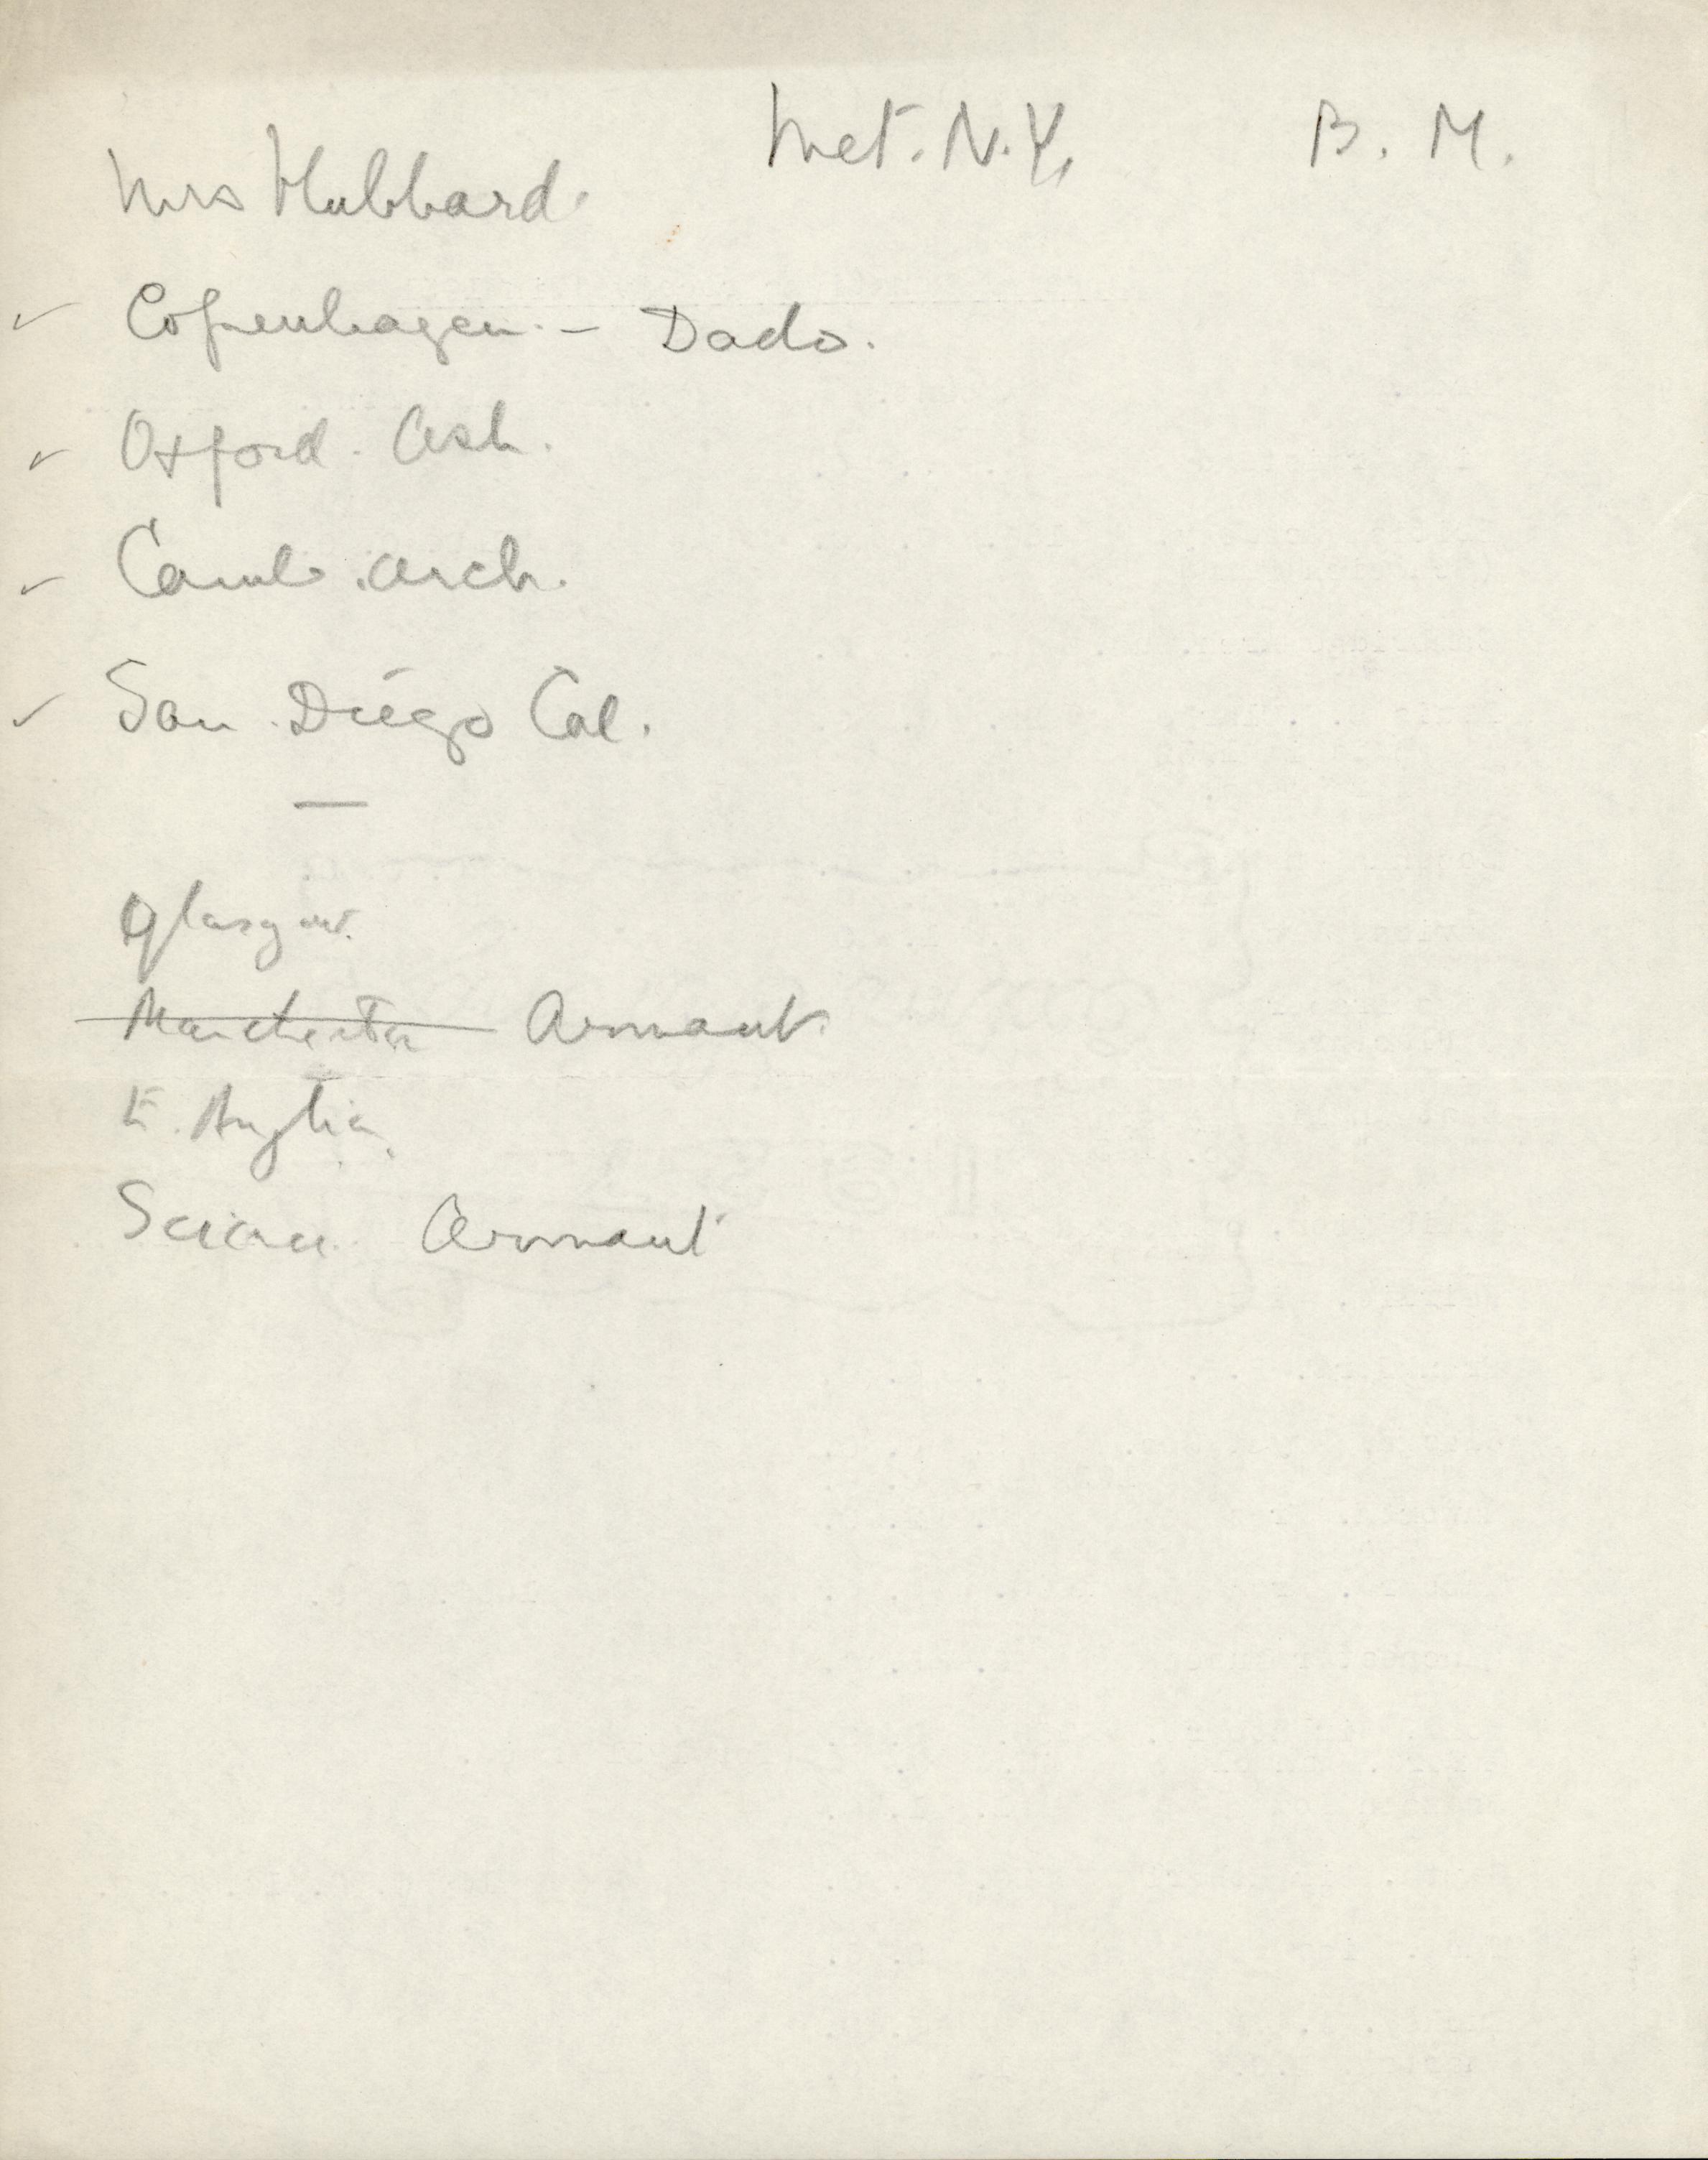 Met. N.Y. B. M.
Mrs Hubbard.
✓ Copenhagen. - Dado.
✓ Oxford. Ash.
✓ Camb. arch.
✓ San Diego Cal.
—
Glasgow.
Manchester Armant.
E. Anglia.
Science Armant